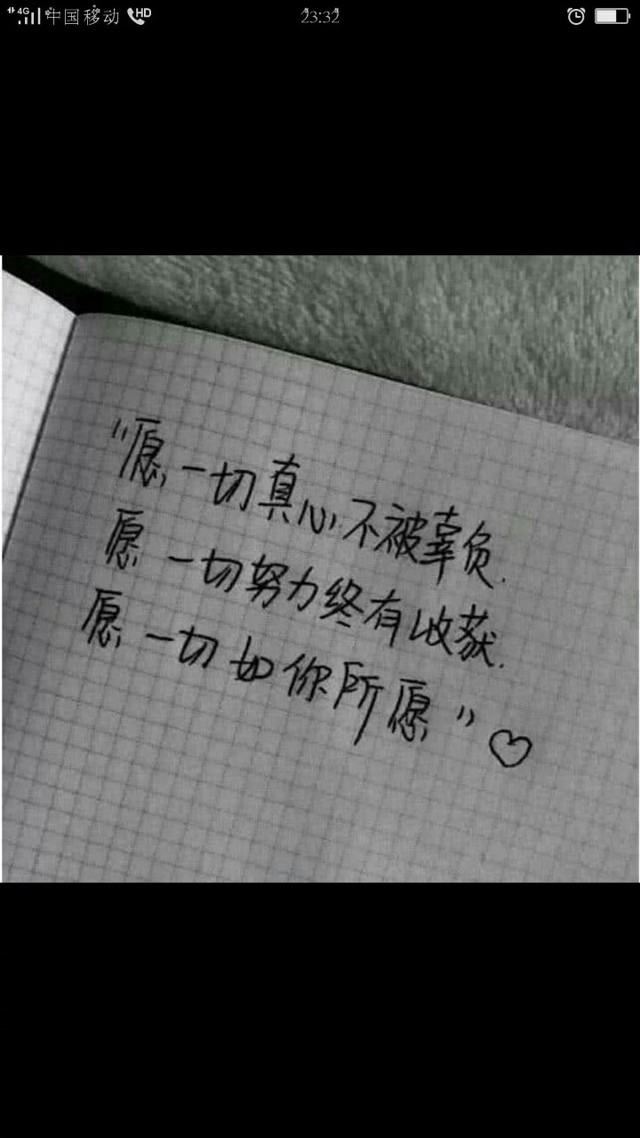 4G 中国移动 HD 23:32
“愿一切真心不被辜负.
愿一切努力终有收获.
愿一切如你所愿”♡